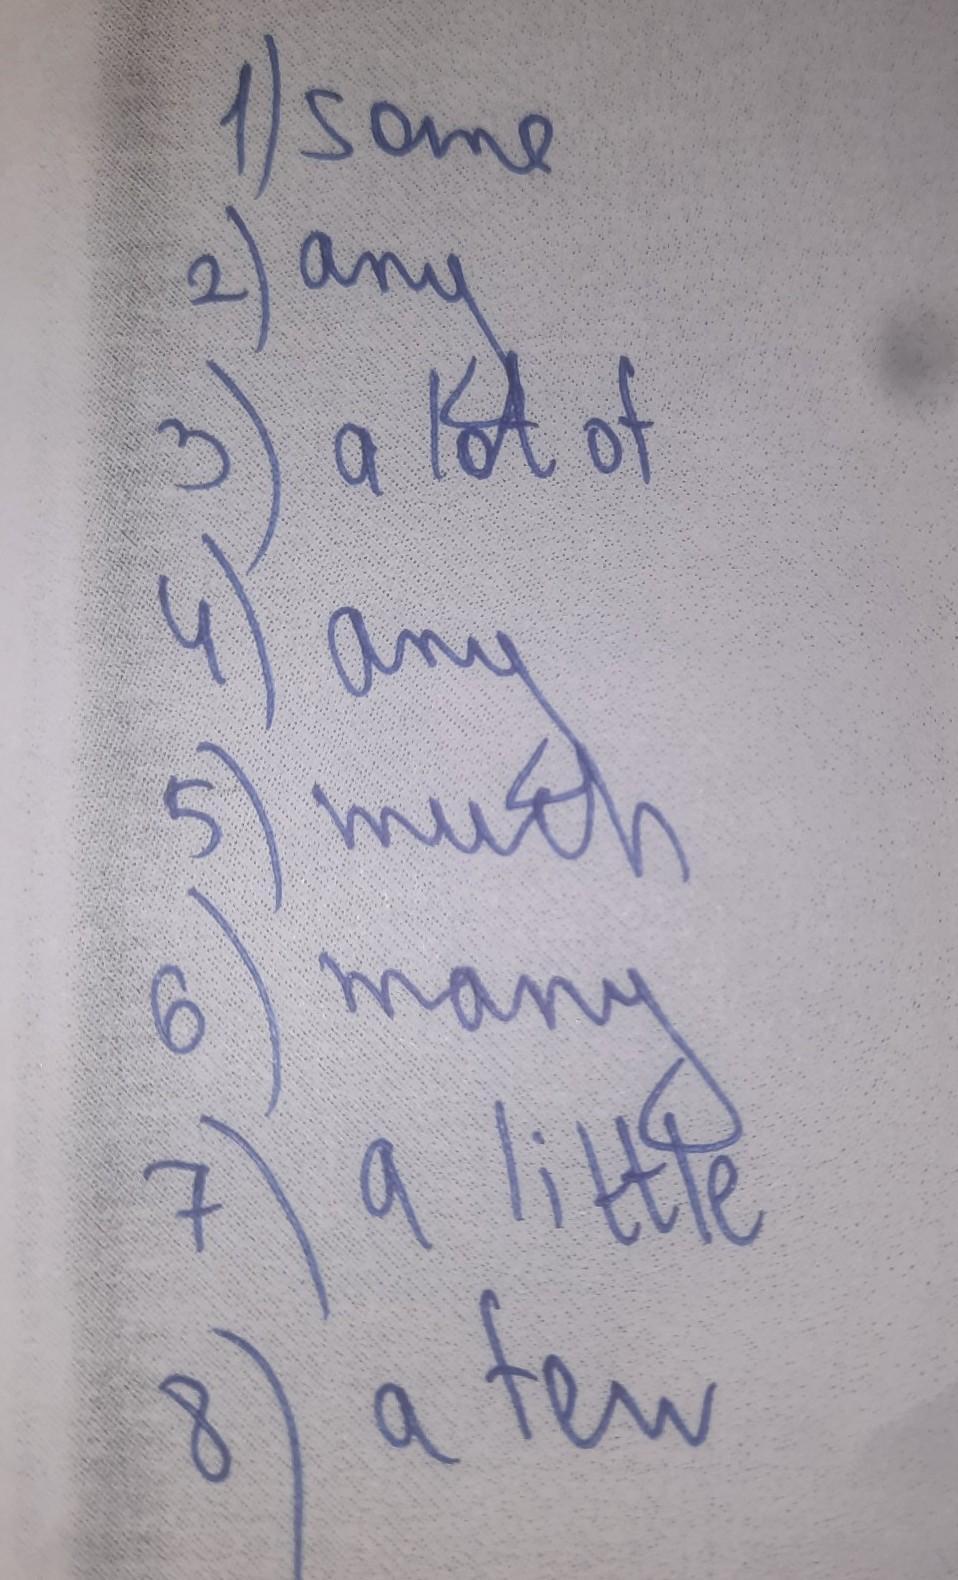 1) some
2) any
3) a lot of
4) any
5) much
6) many
7) a little
8) a few